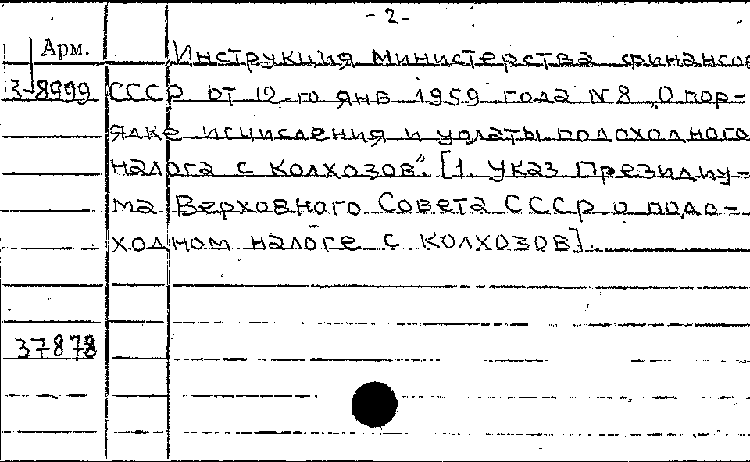 - 2 -
Арм. Инструкция Министерства финансов
3-8999 СССР от 12-го янв 1959 года N8 „О пор-
ядке исчисления и уплаты подоходного
налога с колхозов". [1. Указ Президиу-
ма Верховного Совета СССР о подо-
ходном налоге с колхозов].
37878